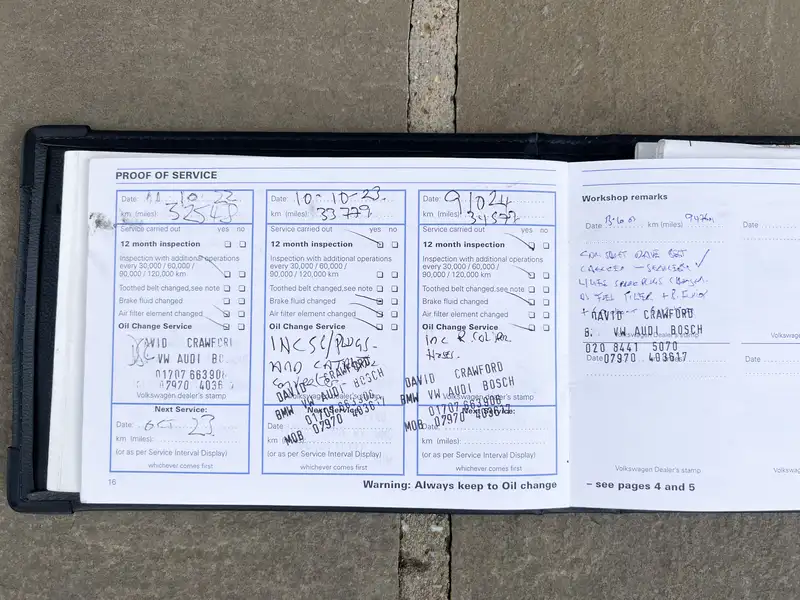 PROOF OF SERVICE
Date: 10.22
km (miles) 32548
Service carried out yes no
12 month inspection
Inspection with additional operations
every 30,000 / 60,000 /
90,000 / 120,000 km
Toothed belt changed, see note
Brake fluid changed
Air filter element changed
Oil Change Service
DAVID CRAWFORD
VW AUDI BO
01707 66390
07970 4036
Volkswagen dealer's stamp
Next Service:
Date: Oct 23
km (miles)
(or as per Service Interval Display)
whichever comes first
16
Date: 10-10-23
km (miles) 33779
Service carried out yes no
12 month inspection
Inspection with additional operations
every 30,000 / 60,000 /
90,000 / 120,000 km
Toothed belt changed, see note
Brake fluid changed
Air filter element changed
Oil Change Service
INC SC/PLUGS
AND
DAVID CRAWFORD
BMW VW AUDI BOSCH
01707 663908
MOB 07970 403617
Next Service:
Date
km (miles)
(or as per Service Interval Display)
whichever comes first
Date: 9 10 24
km (miles) 34577
Service carried out yes no
12 month inspection
Inspection with additional operations
every 30,000 / 60,000 /
90,000 / 120,000 km
Toothed belt changed, see note
Brake fluid changed
Air filter element changed
Oil Change Service
INC
DAVID CRAWFORD
BMW VW AUDI BOSCH
Volkswagen dealer's stamp
01707 663908
MOB 07970 403617
Next Service:
Date
km (miles)
(or as per Service Interval Display)
whichever comes first
Warning: Always keep to Oil change
Workshop remarks
Date km (miles)
DAVID CRAWFORD
B. VW AUDI BOSCH
020 8441 5070
Date 07970 403617
Volkswagen Dealer's stamp
– see pages 4 and 5
Date
Date
Volksw